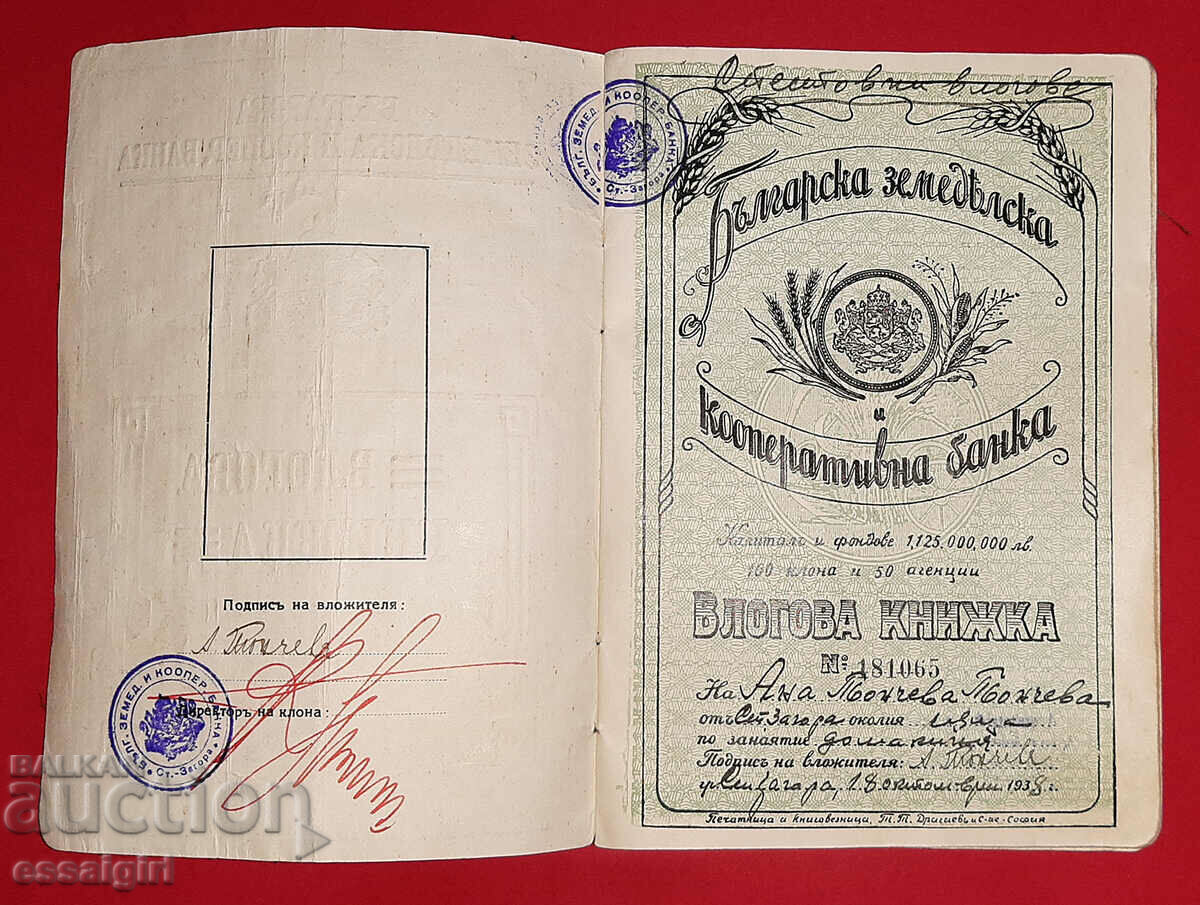 БЪЛГ. ЗЕМЕД. И КООПЕР. БАНКА
Ст.-Загора
Подпись на вложителя:
А. Тончева
Директоръ на клона:
БЪЛГ. ЗЕМЕД. И КООПЕР. БАНКА
Ст.-Загора
Спестовни влогове
Българска земедѣлска
и
Кооперативна банка
Капиталъ и фондове 1,125,000,000 лв.
100 клона и 50 агенции
ВЛОГОВА КНИЖКА
№ 181065
На Ана Тончева Тончева
отъ Ст. Загора околия
по занаятие домакиня
Подпись на вложителя: А. Тончева
Загора, 18 октомври 1938 г.
Печатница и книговезница, Т. Т. Драгиевъ и С-ие - София
BALKAN
auction
essaigirl